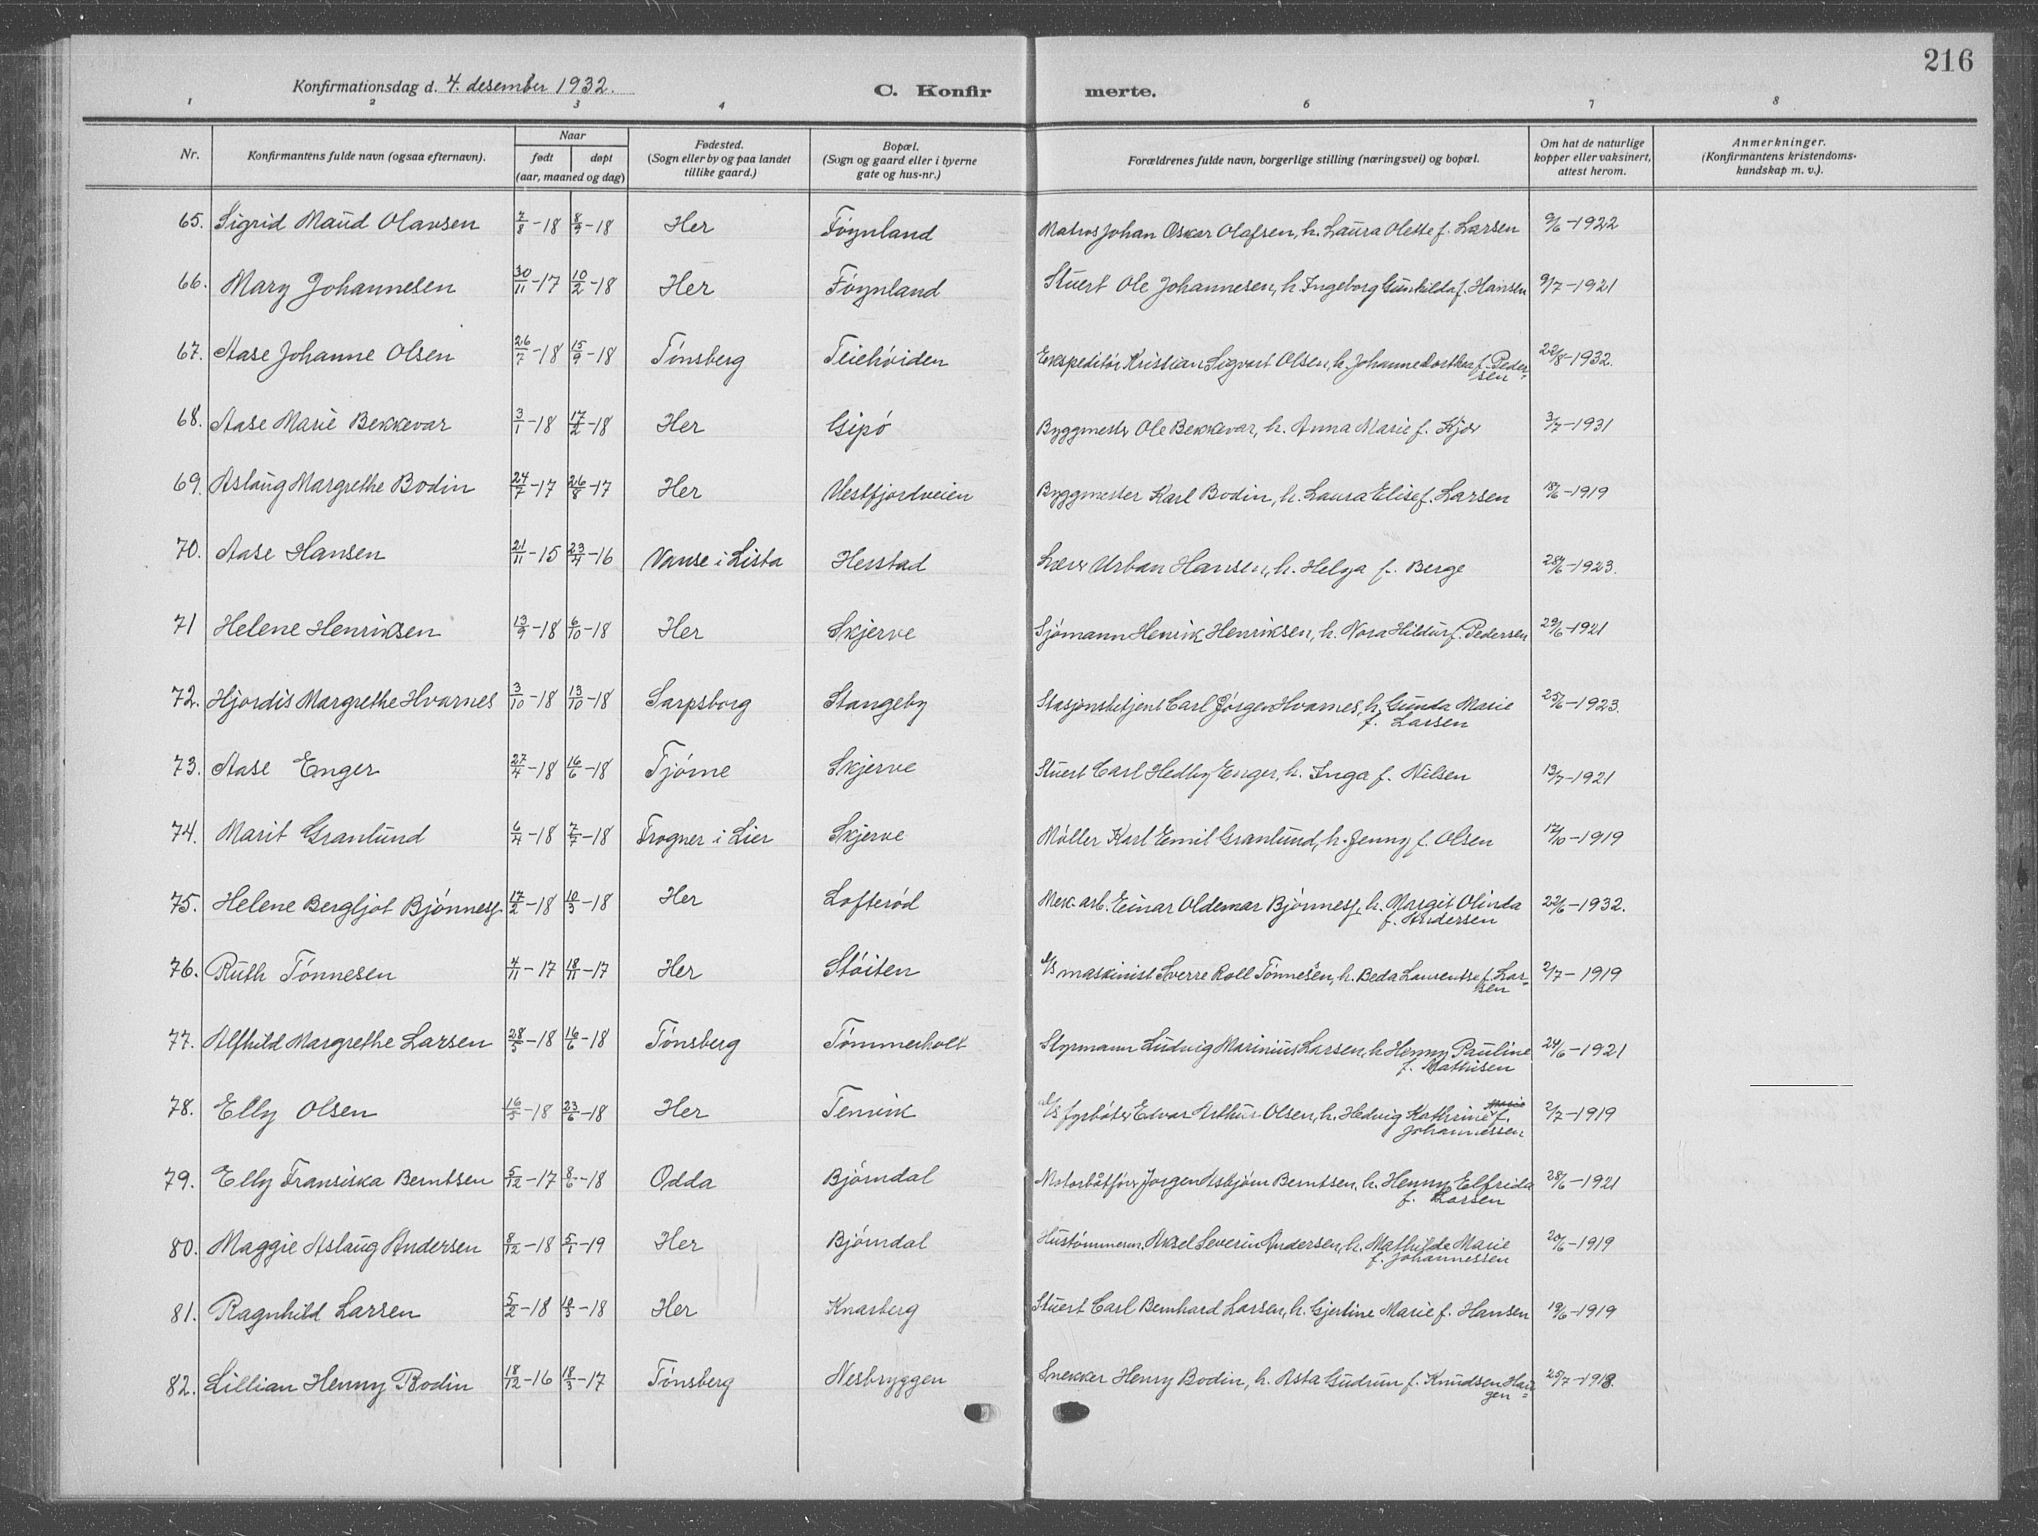 216
Konfirmationsdag d. 4. desember 1932. C. Konfir merte.
1 2 3 4 6 7 8
Nr. Konfirmantens fulde navn (ogsaa efternavn). Naar født døpt (aar, maaned og dag) Fødested. (Sogn eller by og paa landet tillike gaard.) Bopæl. (Sogn og gaard eller i byerne gate og hus-nr.) Forældrenes fulde navn, borgerlige stilling (næringsvei) og bopæl. Om hat de naturlige kopper eller vaksinert, attest herom. Anmerkninger. (Konfirmantens kristendoms-kundskap m. v.).
65. Sigrid Maud Olavsen 7/8-18 8/9-18 Her Føynland Matros Johan Oskar Olafsen, h. Laura Olette f. Larsen 9/6-1922
66. Mary Johannesen 30/11-17 10/2-18 Her Føynland Stuert Ole Johannesen, h. Ingeborg Gunhilda f. Hansen 9/7-1921
67. Aase Johanne Olsen 26/7-18 15/9-18 Tønsberg Teiehøiden Ekspeditør Kristian Sigvart Olsen, h. Johanne Dorthea f. Peder-
sen 22/8-1932.
68. Aase Marie Bekkevar 3/1-18 17/2-18 Her Gipø Byggmester Ole Bekkevar, h. Anna Marie f. Kjær 3/7-1931
69. Aslaug Margrethe Bodin 24/7-17 26/8-17 Her Vestfjordveien Byggmester Karl Bodin, h. Laura Elise f. Larsen 18/6-1919
70. Aase Hansen 21/11-15 23/4-16 Vanse i Lista Herstad Lærer Urban Hansen, h. Helga f. Berge 28/6-1923.
71 Helene Henriksen 13/9-18 6/10-18 Her Skjerve Sjømann Henrik Henriksen, h. Nora Hildur f. Pedersen 29/6-1921
72. Hjørdis Margrethe Hvarnes 3/10-18 13/10-18 Sarpsborg Stangeby Stasjonsbetjent Carl Jørgen Hvarnes, h. Gunda Marie
f. Larsen 25/6-1923.
73. Aase Enger 27/4-18 16/6-18 Tjøme Skjerve Stuert Carl Hedley Enger, h. Inga f. Nilsen 13/7-1921
74. Marit Granlund 6/4-18 7/7-18 Frogner i Lier Skjerve Møller Karl Emil Granlund, h. Jenny f. Olsen 17/10-1919
75. Helene Bergljot Bjønnes 17/2-18 10/3-18 Her Lofterød Mek. arb. Einar Oldemar Bjønnes, h. Margit Olinda
f. Andersen 22/6-1932.
76. Ruth Tønnesen 4/11-17 18/11-17 Her Støiten D/S maskinist Sverre Roll Tønnesen, h. Beda Laurentse f. Lar-
sen 2/7-1919
77. Alfhild Margrethe Larsen 28/5-18 16/6-18 Tønsberg Tømmerholt Styrmann Ludvig Marinius Larsen, h. Henny Pauline
f. Mathisen 24/6-1921
78. Elly Olsen 16/5-18 23/6-18 Her Tenvik D/S fyrbøter Edvar Arthur Olsen, h. Hedvig Kathrine f.
Johannessen 2/7-1919
79. Elly Fransiska Berntsen 5/12-17 8/6-18 Odda Bjørndal Motorbåtfører Jørgen Asbjørn Berntsen, h. Henny Elfrida
f. Larsen 28/6-1921
80. Maggie Aslaug Andersen 8/12-18 5/1-19 Her Bjørndal Hustømmerm. Aksel Severin Andersen, h. Mathilde Marie
f. Johannessen 20/6-1919
81. Ragnhild Larsen 5/2-18 10/3-18 Her Knarberg Stuert Carl Bernhard Larsen, h. Gjertine Marie f. Hansen 19/6-1919
82. Lillian Henny Bodin 18/12-16 18/3-17 Tønsberg Nesbryggen Snekker Henry Bodin, h. Asta Gudrun f. Knudsen Hau-
gen 25/7-1918.